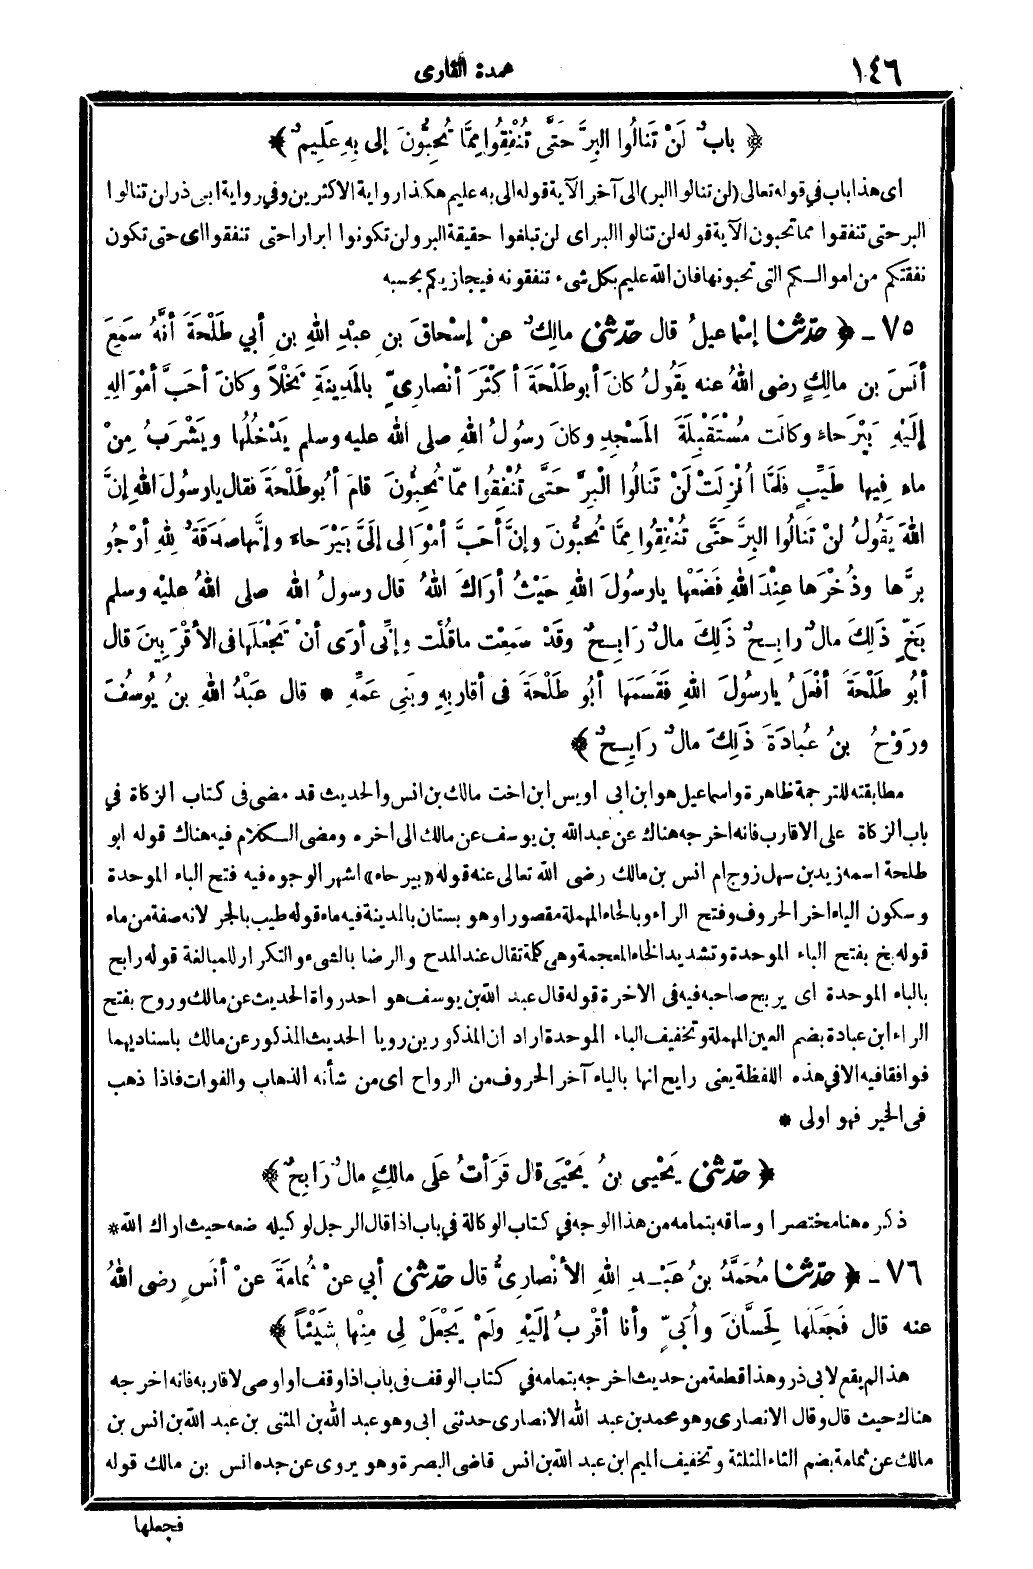 ١٤٦
عمدة القارى
﴿ بابٌ لَنْ تَنالُوا البِرَّ حَتَّى تُنْفِقُوا مِمَّا تُحِبُّونَ إلى بِهِ عَلِيمٌ ﴾
اى هذا باب في قوله تعالى (لن تنالوا البر) الى آخر الآية قوله الى به عليم هكذا رواية الاكثرين وفي رواية ابى ذر لن تنالوا
البر حتى تنفقوا مما تحبون الآية قوله لن تنالوا البر اى لن تبلغوا حقيقة البر ولن تكونوا ابرارا حتى تنفقوا اى حتى تكون
نفقتكم من اموالكم التى تحبونها فان الله عليم بكل شىء تنفقونه فيجازيكم بحسبه
٧٥ - ﴿ حدّثنا إسْماعيلُ قال حدّثنى مالِكٌ عنْ إسْحاقَ بنِ عبْدِ اللهِ بنِ أبي طَلْحَةَ أنَّهُ سَمِعَ
أنَسَ بن مالِكٍ رضى اللهُ عنه يَقُولُ كانَ أبو طَلْحَةَ أكْثَرَ أنْصارِيٍّ بالمَدِينَةِ نَخْلاً وكانَ أحَبَّ أمْوَالِهِ
إلَيْهِ بَيْرَحاءَ وكانَت مُسْتَقْبِلَةَ المَسْجِدِ وكانَ رسولُ اللهِ صلى الله عليه وسلم يَدْخُلُها ويَشْرَبُ مِنْ
ماءٍ فِيها طَيِّبٍ فَلَمَّا أُنْزِلَتْ لَنْ تَنالُوا الْبِرَّ حَتَّى تُنْفِقُوا مِمَّا تُحِبُّونَ قامَ أبُو طَلْحَةَ فقال يارسُولَ اللهِ إنَّ
اللهَ يَقُولُ لنْ تَنالُوا البِرَّ حَتَّى تُنْفِقُوا مِمَّا تُحِبُّونَ وإنَّ أحَبَّ أمْوَالى إلَىَّ بَيْرَحاءَ وإنَّها صَدَقَةٌ لِلهِ أرْجُو
بِرَّها وذُخْرَها عِنْدَ اللهِ فَضَعْها يارسُولَ اللهِ حَيْثُ أرَاكَ اللهُ قال رسولُ الله صلى اللهُ عليْه وسلم
بَخٍّ ذَلِكَ مالٌ رابِحٌ ذَلِكَ مالٌ رَابِحٌ وقَدْ سَمِعْت ماقُلْت وإنِّى أرَى أنْ تَجْعَلَها فى الأقْرَبِينَ قال
أبُو طَلْحَةَ أفْعَلُ يارسُولَ اللهِ فَقَسَمَها أبُو طَلْحَةَ فى أقارِبِهِ وبَنِى عَمِّهِ * قال عَبْدُ اللهِ بنُ يُوسُفَ
ورَوْحُ بنُ عُبادَةَ ذَلِكَ مالٌ رَايِحٌ ﴾
مطابقته للترجمة ظاهرة واسماعيل هو ابن ابى اويس ابن اخت مالك بن انس والحديث قد مضى فى كتاب الزكاة في
باب الزكاة على الاقارب فانه اخرجه هناك عن عبدالله بن يوسف عن مالك الى اخره ومضى الكلام فيه هناك قوله ابو
طلحة اسمه زيد بن سهل زوج ام انس بن مالك رضى الله تعالى عنه قوله «بيرحاء» اشهر الوجوه فيه فتح الباء الموحدة
وسكون الياء اخر الحروف وفتح الراء وبالحاء المهملة مقصورا وهو بستان بالمدينة فيه ماء قوله طيب بالجر لانه صفة من ماء
قوله بخ بفتح الباء الموحدة وتشديد الخاء المعجمة وهى كلمة تقال عند المدح والرضا بالشىء والتكرار للمبالغة قوله رابح
بالباء الموحدة اى يربح صاحبه فيه فى الاخرة قوله قال عبد الله بن يوسف هو احد رواة الحديث عن مالك وروح بفتح
الراء ابن عبادة بضم العين المهملة وتخفيف الباء الموحدة اراد ان المذكورين رويا الحديث المذكور عن مالك باسناديهما
فوافقا فيه الا في هذه اللفظة يعنى رايح انها بالياء آخر الحروف من الرواح اى من شأنه الذهاب والفوات فاذا ذهب
فى الخير فهو اولى *
﴿ حدّثنى يَحْيى بنُ يَحْيَى قال قَرَأتُ عَلَى مالِكٍ مالٌ رَابِحٌ ﴾
ذكره هنا مختصرا وساقه بتمامه من هذا الوجه في كتاب الوكالة في باب اذا قال الرجل لوكيله ضعه حيث اراك الله *
٧٦ - ﴿ حدّثنا مُحَمَّدُ بنُ عَبْدِ اللهِ الأنْصارِىُّ قال حدّثنى أبي عنْ ثُمامَةَ عنْ أنَسٍ رضى اللهُ
عنه قال فَجَعَلَها لِحَسَّانَ وأُبَيٍّ وأنا أقْرَبُ إلَيْهِ ولَمْ يَجْعَلْ لِى مِنْها شَيْئاً ﴾
هذا لم يقع لابى ذر وهذا قطعة من حديث اخرجه بتمامه في كتاب الوقف فى باب اذا وقف او اوصى لاقاربه فانه اخرجه
هناك حيث قال وقال الانصارى وهو محمد بن عبد الله الانصارى حدثنى ابى وهو عبد الله بن المثنى بن عبد الله بن انس بن
مالك عن ثمامة بضم الثاء المثلثة وتخفيف الميم ابن عبد الله بن انس قاضى البصرة وهو يروى عن جده انس بن مالك قوله
فجعلها